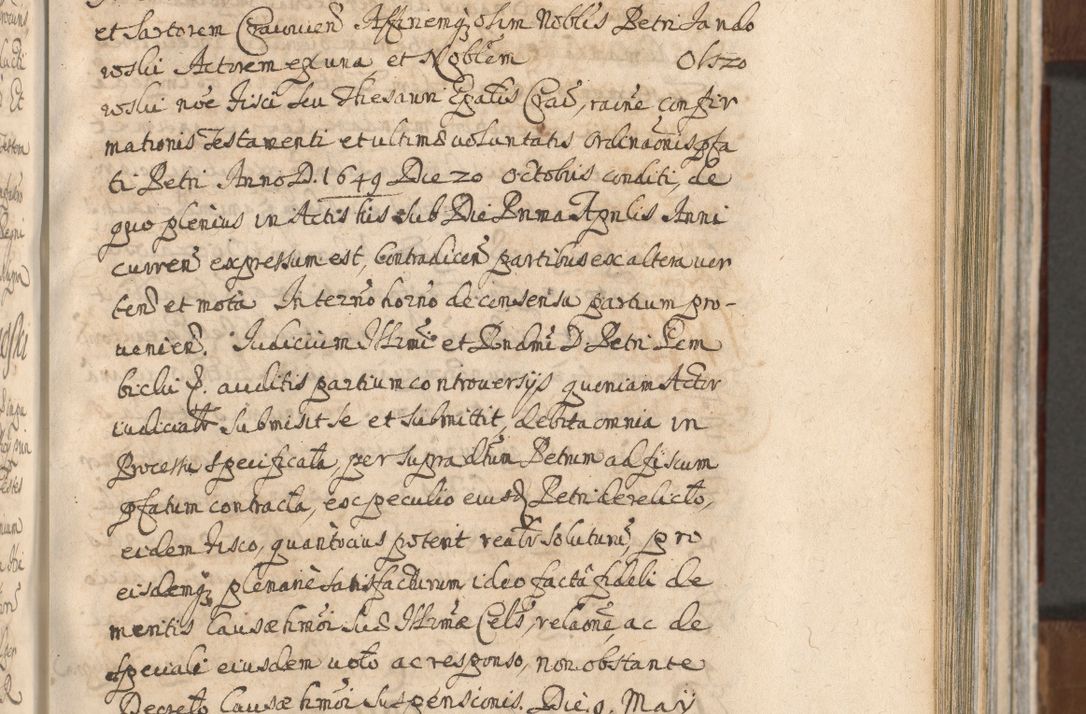 et Sartorem Cracovien Affinemq olim Nobilis Petri Jando
wski Actorem ex una et Noblem Olszo
wski nõe Fisci seu Thesauri Epalis Crac, raõne confir
mationis Testamenti et ultimæ voluntatis Ordinaõnis pfa
ti Petri Anno D. 1649 Die 20 Octobris conditi, de
quo plenius in Actis his sub Die Prima Aprilis Anni
curren expressum est, Contradicen partibus ex altera ver
ten et mota In termõ horno de consensu partium pro-
venien. Judicium Illrmi et Rndmi D. Petri Gem
bicki E. auditis partium controversijs quoniam Actor
iudicialr submisit se et submittit, debita omnia in
Processu specificata, per supradtum Petrum ad fiscum
pfatum contracta, ex peculio eiusd Petri derelicto,
eidem Fisco, quantocius poterit realr soluturu, pro
eisdemq plenarie satisfacturum ideo facta fideli de
meritis Causæ hmõi Suæ Illrmæ Cels, relaõne, ac de
speciali eiusdem voto ac responso, non obstante
Decreto Causæ hmõi suspensionis. Die 9. May